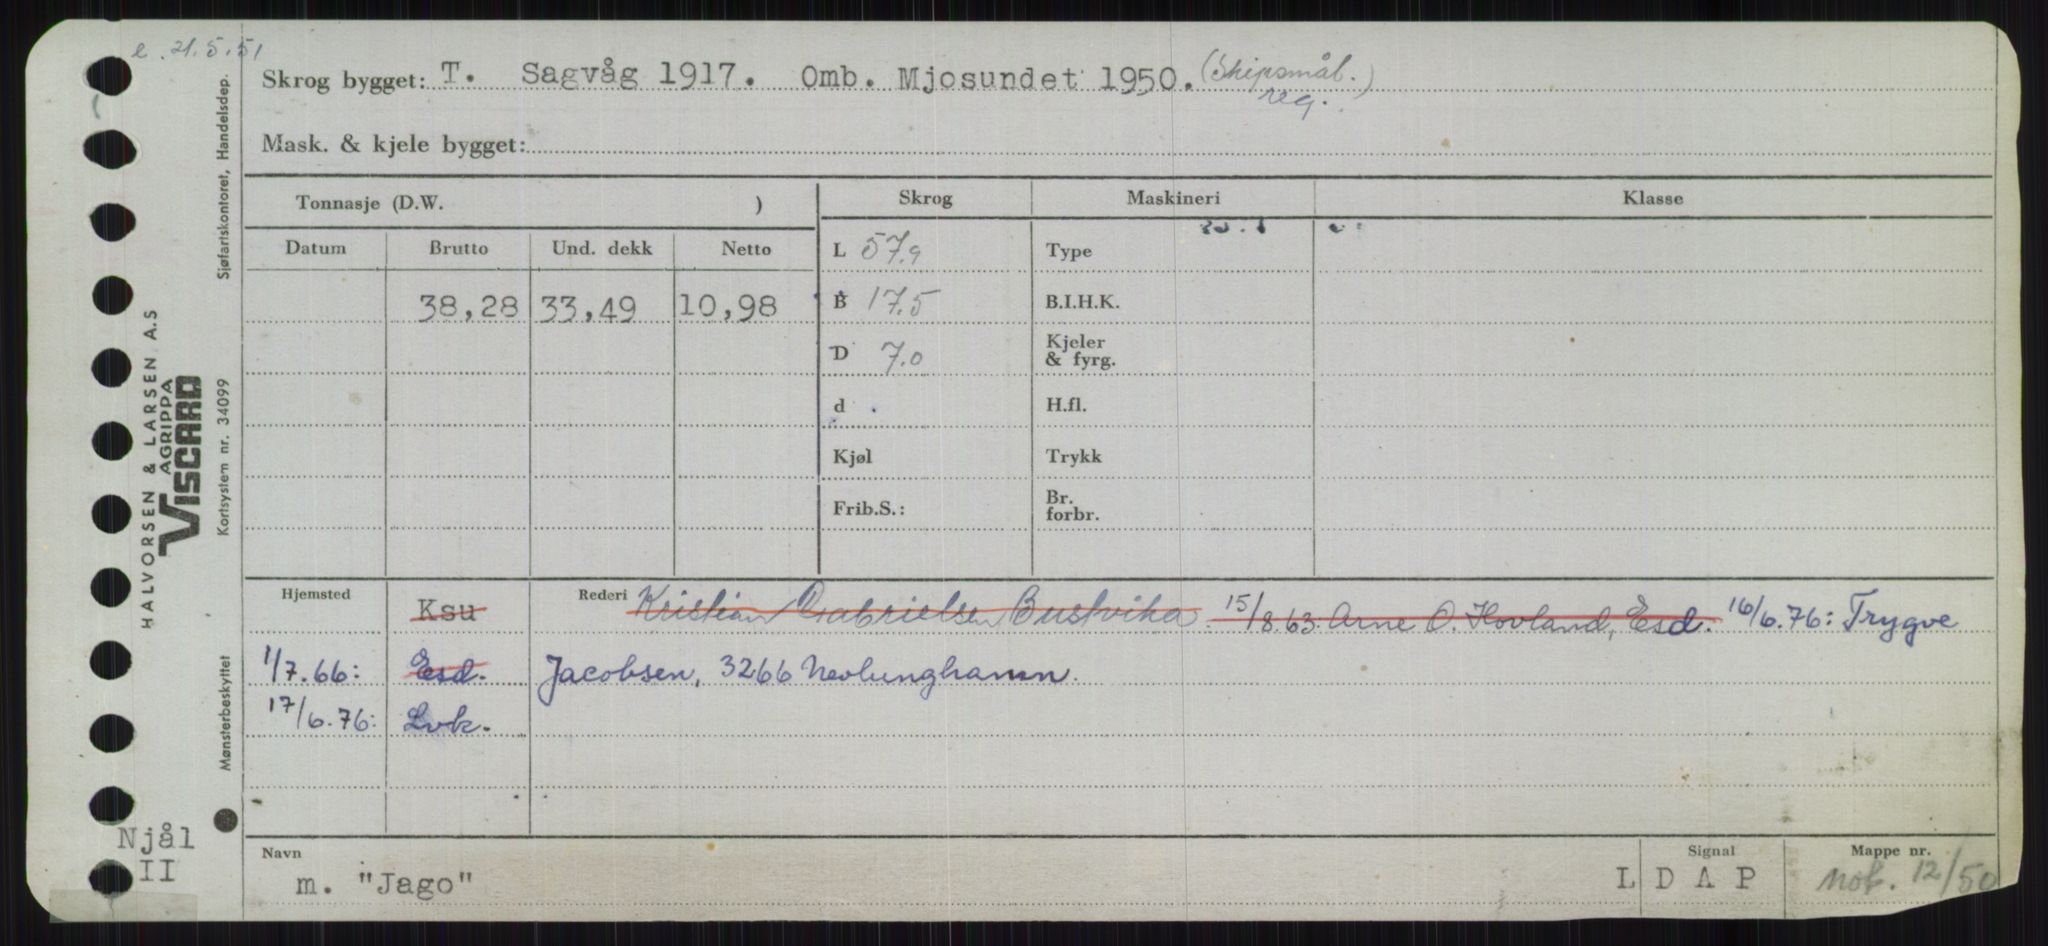 e. 21.5.51
Skrog bygget: T. Sagvåg 1917. Omb. Mjosundet 1950. (Skipsmål.)
reg.
Mask. & kjele bygget:
Tonnasje (D.W. ) Skrog Maskineri Klasse
Datum Brutto Und. dekk Netto L 57.9 Type
38,28 33,49 10,98 B 17.5 B.I.H.K.
D 7.0 Kjeler & fyrg.
d H.fl.
Kjøl Trykk
Frib.S.: Br. forbr.
Hjemsted Ksu Rederi Kristian Gabrielsen Bustvika. 15/8.63. Arne O. Hovland, Esd. 16/6.76: Trygve
1/7.66: Esd. Jacobsen, 3266 Nevlunghamn.
17/6.76: Lvk.
Navn Signal Mappe nr.
m. "Jago" L D A P Not. 12/50
Njål
II
HALVORSEN & LARSEN A.S
AGRIPPA
VISCARD
Mønsterbeskyttet Kortsystem nr. 34099 Sjøfartskontoret, Handelsdep.